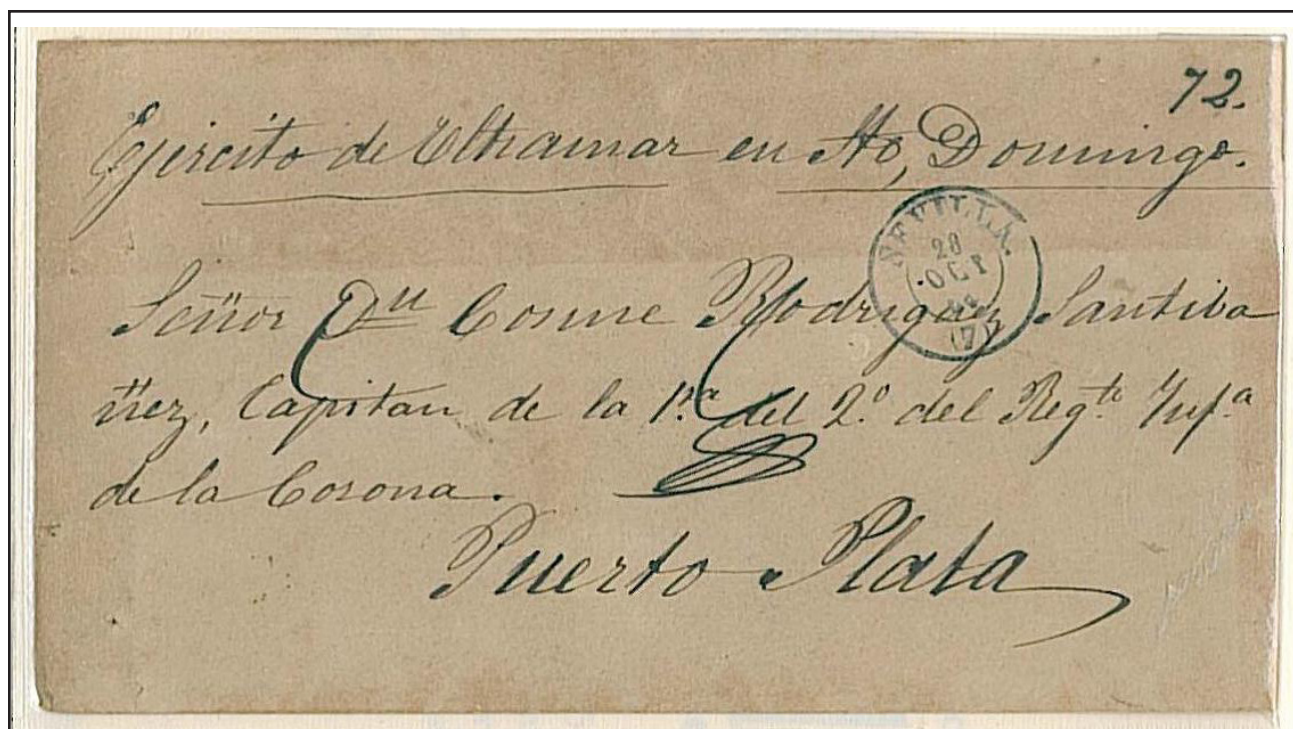 72.
Ejército de Ultramar en Sto, Domingo.
SEVILLA.
28
OCT
(7)
Señor Dn Cosme Rodriguez Santiba
ñez, Capitan de la 1ª del 2º del Regto Infª
de la Corona.
Puerto Plata